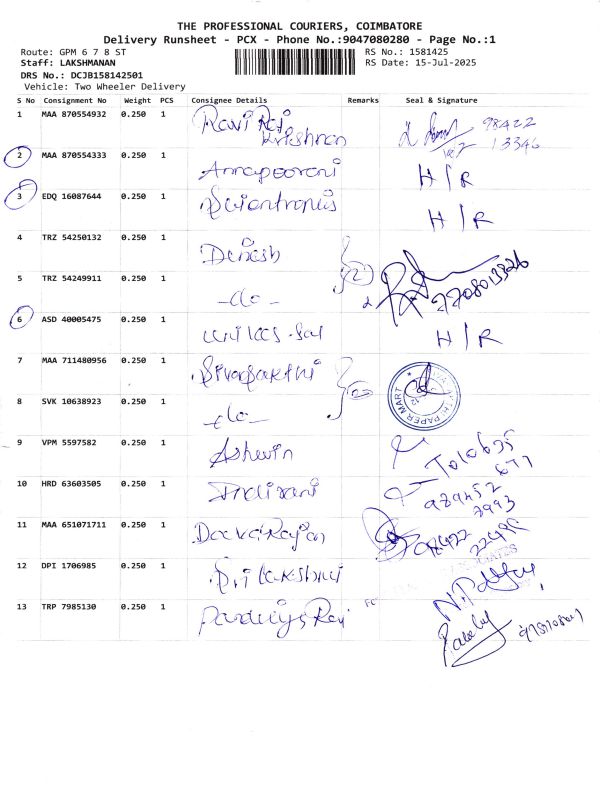 THE PROFESSIONAL COURIERS, COIMBATORE
Delivery Runsheet - PCX - Phone No.:9047080280 - Page No.:1
Route: GPM 6 7 8 ST RS No.: 1581425
Staff: LAKSHMANAN RS Date: 15-Jul-2025
DRS No.: DCJB158142501
Vehicle: Two Wheeler Delivery
S No Consignment No Weight PCS Consignee Details Remarks Seal & Signature
1 MAA 870554932 0.250 1 Ravi Raj Krishnan 98422 13346
2 MAA 870554333 0.250 1 Annapoorani H/R
3 EDQ 16087644 0.250 1 H/R
4 TRZ 54250132 0.250 1 Dinesh
5 TRZ 54249911 0.250 1 -do- 2
6 ASD 40005475 0.250 1 H/R
7 MAA 711480956 0.250 1 Sivasakthi
8 SVK 10638923 0.250 1 -do- 2 PAPER MART
9 VPM 5597582 0.250 1 Ashwin
10 HRD 63603505 0.250 1 Indirani
11 MAA 651071711 0.250 1
12 DPI 1706985 0.250 1 Sri Lakshmi
13 TRP 7985130 0.250 1